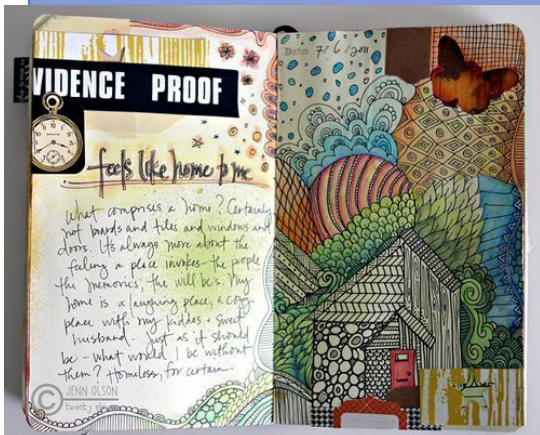 VIDENCE PROOF
feels like home to me
What comprises a home? Certainly
not boards and tiles and windows and
doors. It's always more about the
feeling a place invokes - the people
the memories, the will be's. My
home is a laughing place, a cozy
place with my kiddos + sweet
husband. Just as it should
be - what would I be without
them? Homeless, for certain.
© JENN OLSON
twenty
Date 7/6/2011